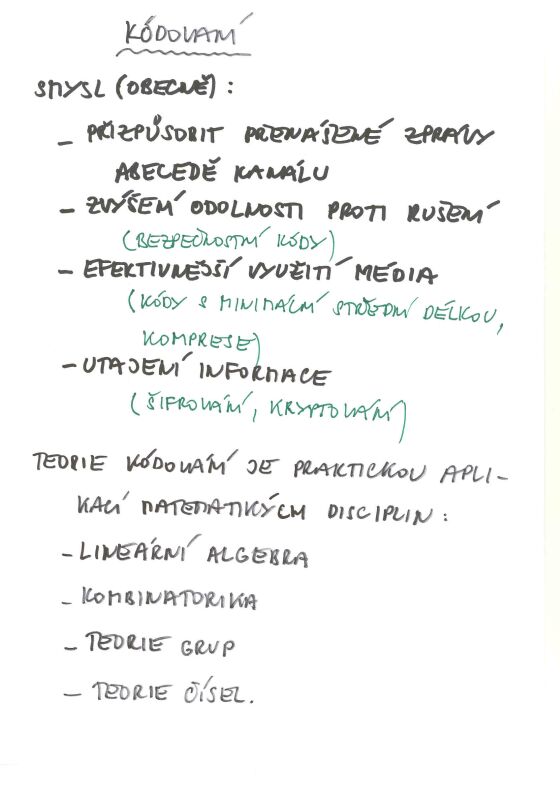 KÓDOVANÍ
SMYSL (OBECNĚ):
- PŘIZPŮSOBIT PŘENÁŠENÉ ZPRÁVY
ABECEDĚ KANÁLU
- ZVÝŠENÍ ODOLNOSTI PROTI RUŠENÍ
(BEZPEČNOSTNÍ KÓDY)
- EFEKTIVNĚJŠÍ VYUŽITÍ MÉDIA
(KÓDY S MINIMALNÍ STŘEDNÍ DÉLKOU,
KOMPRESE)
- UTAJENÍ INFORMACE
(ŠIFROVÁNÍ, KRYPTOVÁNÍ)
TEORIE KÓDOVÁNÍ JE PRAKTICKOU APLI-
KACÍ MATEMATICKÝCH DISCIPLIN:
- LINEÁRNÍ ALGEBRA
- KOMBINATORIKA
- TEORIE GRUP
- TEORIE ČÍSEL.